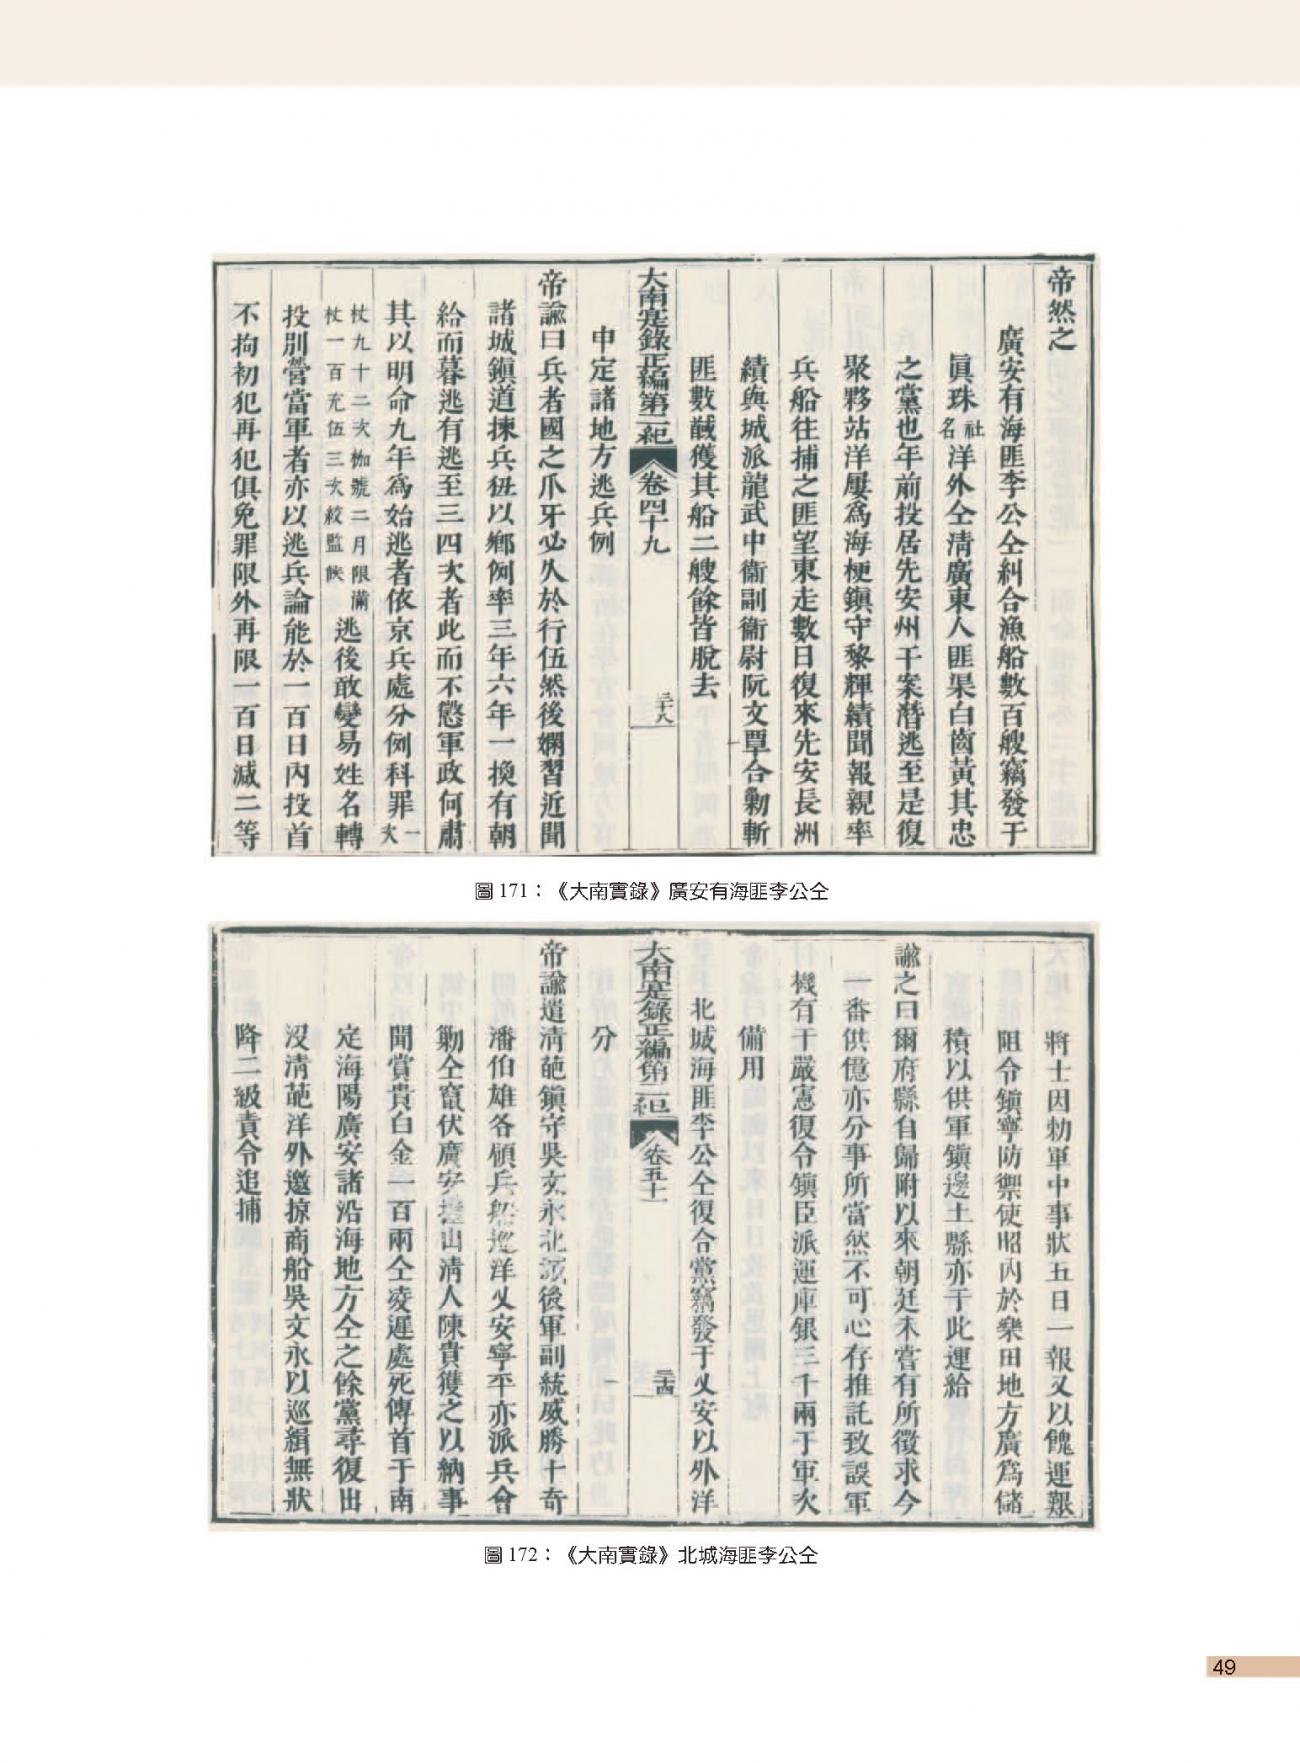 帝然之
廣安有海匪李公仝糾合漁船數百艘竊發于
眞珠社名洋外仝清廣東人匪渠白齒黃其忠
之黨也年前投居先安州干案潛逃至是復
聚夥站洋屢爲海梗鎮守黎輝績聞報親率
兵船往捕之匪望東走數日復來先安長洲
績與城派龍武中衞副衞尉阮文覃合勦斬
匪數馘獲其船二艘餘皆脫去
申定諸地方逃兵例
大南寔錄正編第二紀 卷四十九 三十八
帝諭曰兵者國之爪牙必久於行伍然後嫻習近聞
諸城鎮道揀兵狃以鄉例率三年六年一換有朝
給而暮逃有逃至三四次者此而不懲軍政何肅
其以明命九年爲始逃者依京兵處分例科罪一次
杖九十二次枷號二月限滿杖一百充伍三次絞監候逃後敢變易姓名轉
投別營當軍者亦以逃兵論能於一百日內投首
不拘初犯再犯俱免罪限外再限一百日減二等
圖 171：《大南實錄》廣安有海匪李公仝
將士因勅軍中事狀五日一報又以餽運艱
阻令鎮寧防禦使昭內於樂田地方廣爲儲
積以供軍鎮邊土縣亦于此運給
諭之曰爾府縣自歸附以來朝廷未嘗有所徵求今
一番供億亦分事所當然不可心存推託致誤軍
機有干嚴憲復令鎮臣派運庫銀三千兩于軍次
備用
北城海匪李公仝復合黨竊發于乂安以外洋
分
大南寔錄正編第二紀 卷五十一 二十四
帝諭遣清葩鎮守吳文永北城後軍副統威勝十奇
潘伯雄各領兵船巡洋乂安寧平亦派兵會
勦仝竄伏廣安㙮山清人陳貴獲之以納事
聞賞貴白金一百兩仝凌遲處死傳首于南
定海陽廣安諸沿海地方仝之餘黨尋復出
沒清葩洋外邀掠商船吳文永以巡緝無狀
降二級責令追捕
圖 172：《大南實錄》北城海匪李公仝
49